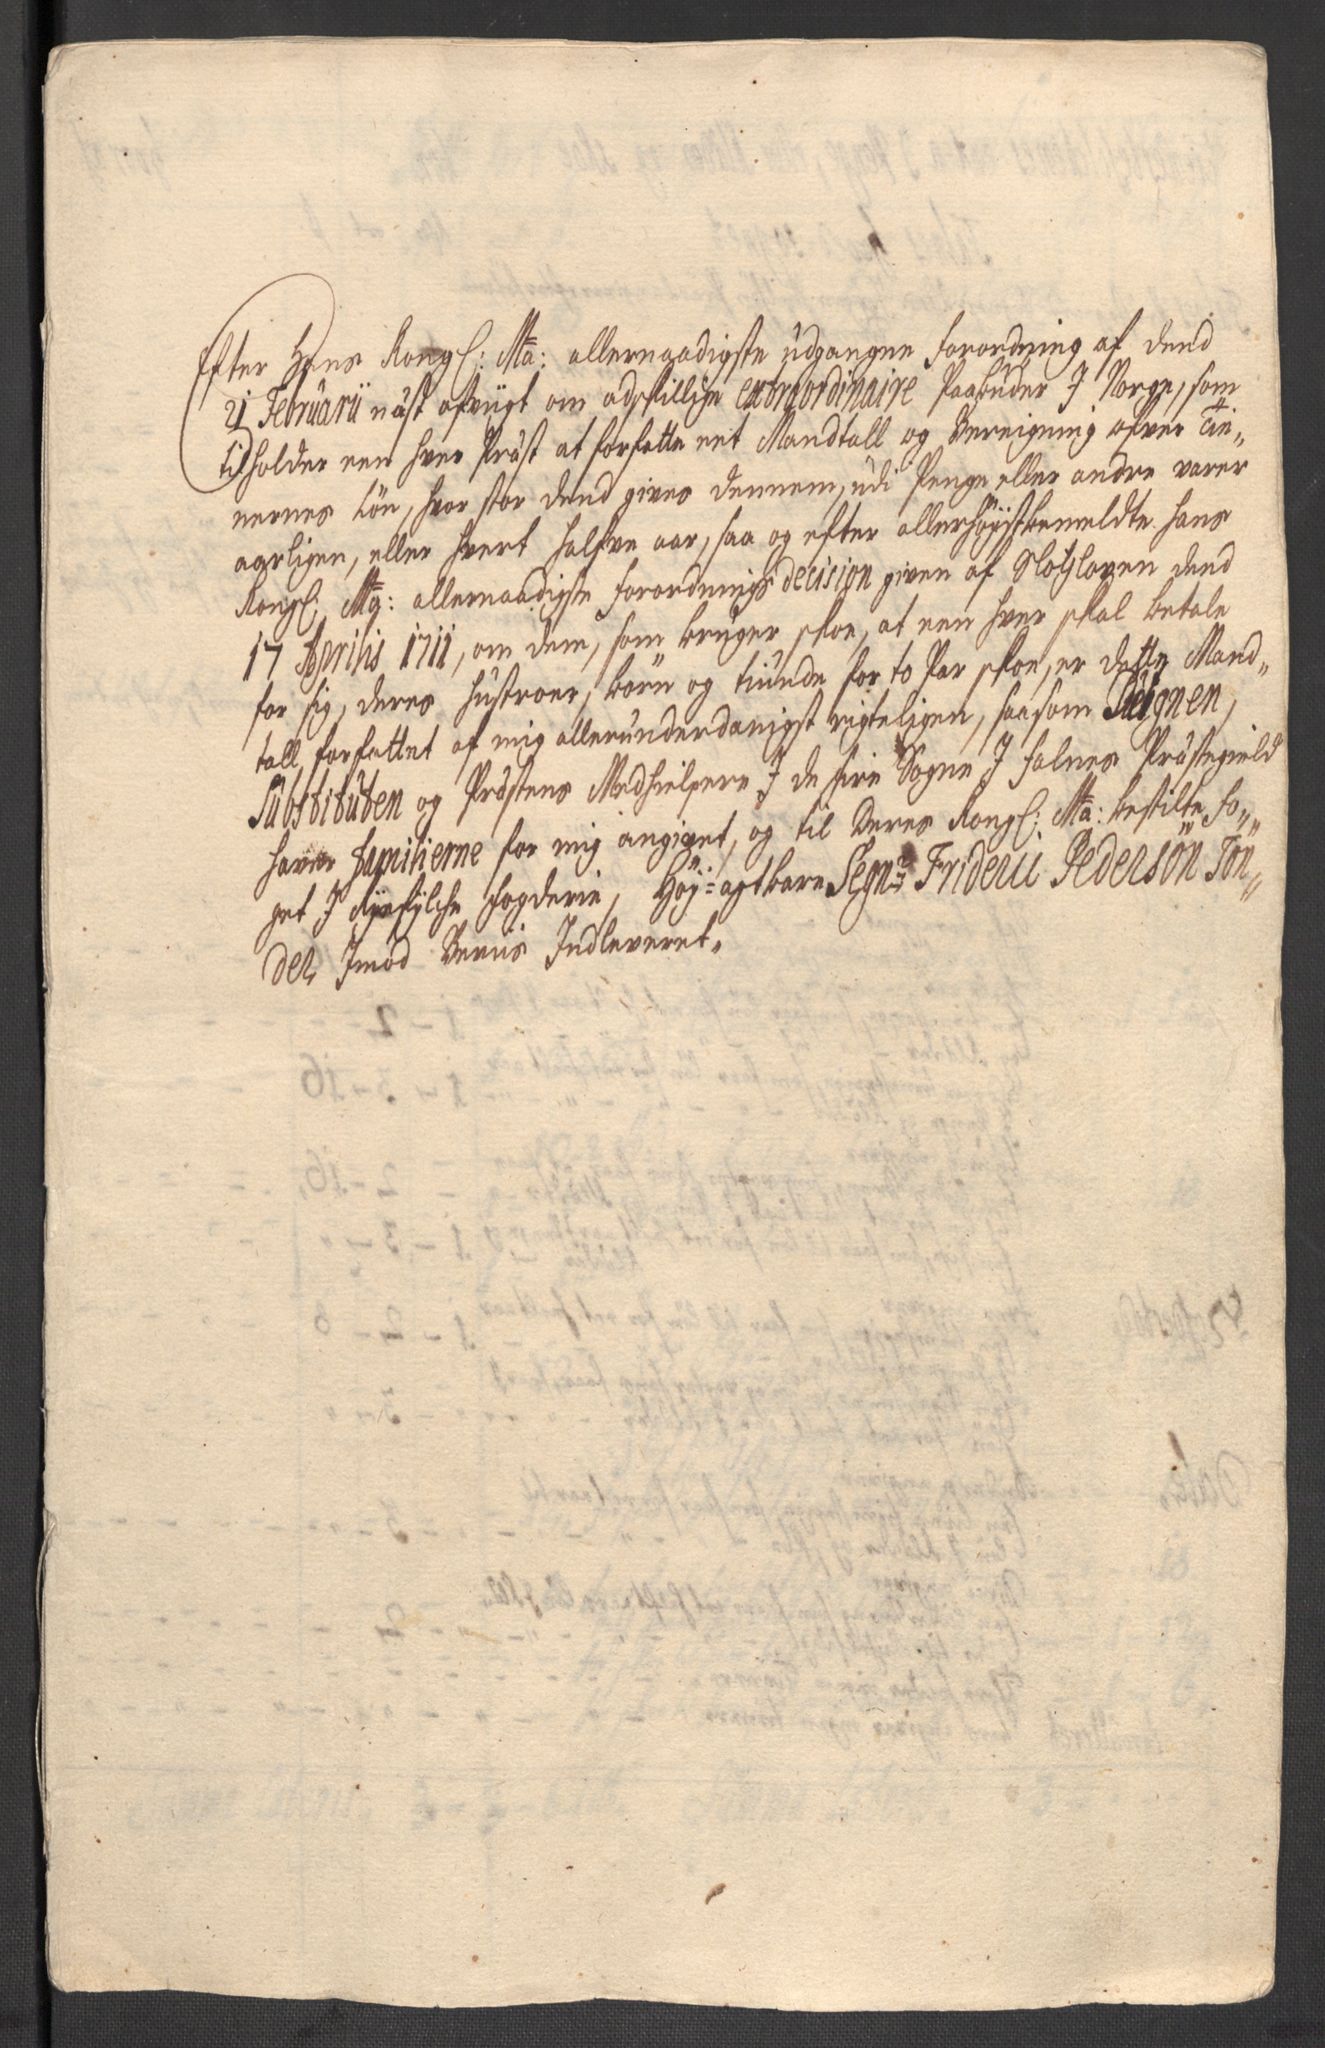 Efter Hans Kongl: Ma: allernaadigste udgangne forordning af dend
21 Februarii näst afvigt om adskillige extraordinaire Paabuder J Norge, som
tilholder een hver Präst at forfatte eet Mandtall og Bereigning ofver Tie„
nernes Løn, hvor stor dend gives dennem, udi Penge eller andre varer
aarligen, eller hvert halfve aar, saa og efter allerhöyistbemeldte hans
Kongl: Ma: allernaadigste forordnings decision given af Slotzloven dend
17 Aprilis 1711, om dem, som bruger skoe, at een hver skal betale
for sig, deres hustroer, börn og tiunde for to Par skoe, er dette Mand„
tall forfattet af mig allerunderdanigst rigteligen, saasom
Substituten og Prästens Medhielpere J de fire Sogne J Falnes Prästegield
haver familierne for mig angivet, og til Deres Kongl: Ma: bestilte Fo„
get J Ryefylche fogderie, Höy-agtbare Segnr Friderii Pedersön Tön„
der Jmod Beviis Jndleveret.